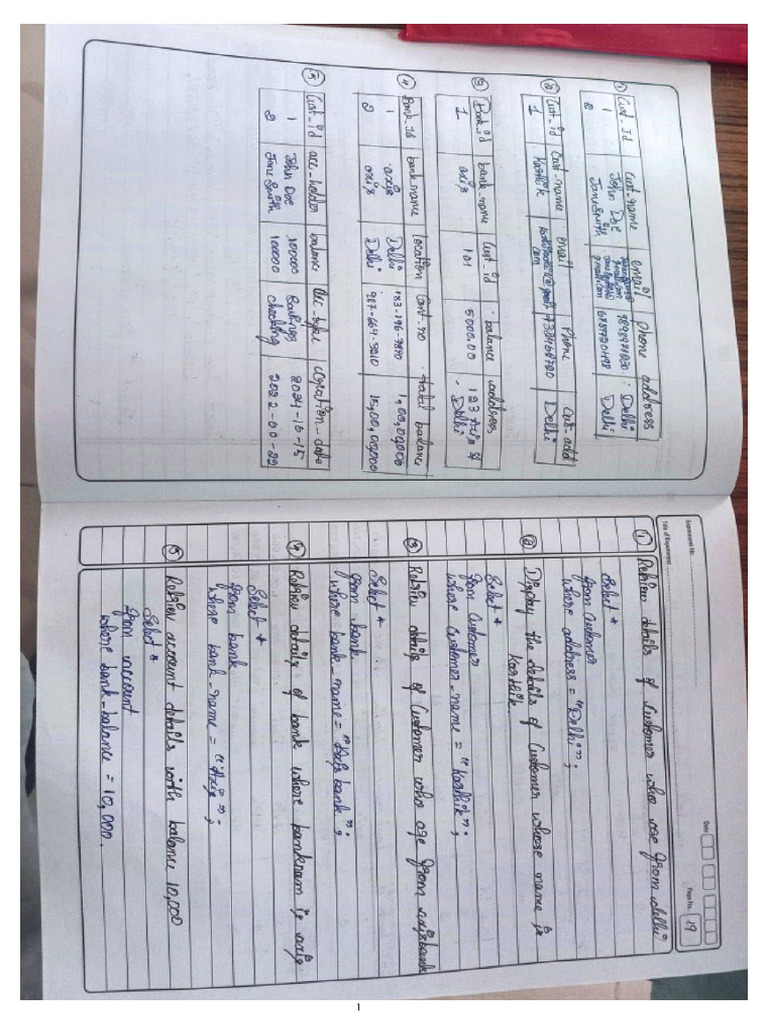 ① Cust_Id Cust_name email phone address
1 John Doe 9898971230 Delhi
2 Jane Smith gmail.com 6789720498 Delhi
② Cust_id Cust_name email Phone Cust_add
1 Karthik com Delhi
③ Bank_id bank_name Cust_id balance address
1 axis 101 5000.00 123 Axis st
Delhi
④ Bank_Id bank_name location Cont_no total balance
1 axis Delhi
2 axis Delhi 987-664-3210
⑤ Cust_id acc_holder balance acc_type
1 John Doe 100000 Savings 2024-10-15
2 Jane Smith 100000 checking
Experiment No.
Title of Experiment
Date
Page No. 19
① Retriew details of Customer who are from delhi
Select *
from Customer
where address = "Delhi";
② Display the details of Customer whose name is
Karthik.
Select *
from Customer
where Customer_name = "Karthik";
③ Retriew details of Customer who are from axisbank
Select *
from bank
where bank_name = "Axis bank";
④ Retriew details of bank where banknam is axis
Select *
from bank
where bank_name = "Axis";
⑤ Retriew account details with balance 10,000
Select *
from account
where bank_balance = 10,000.
1